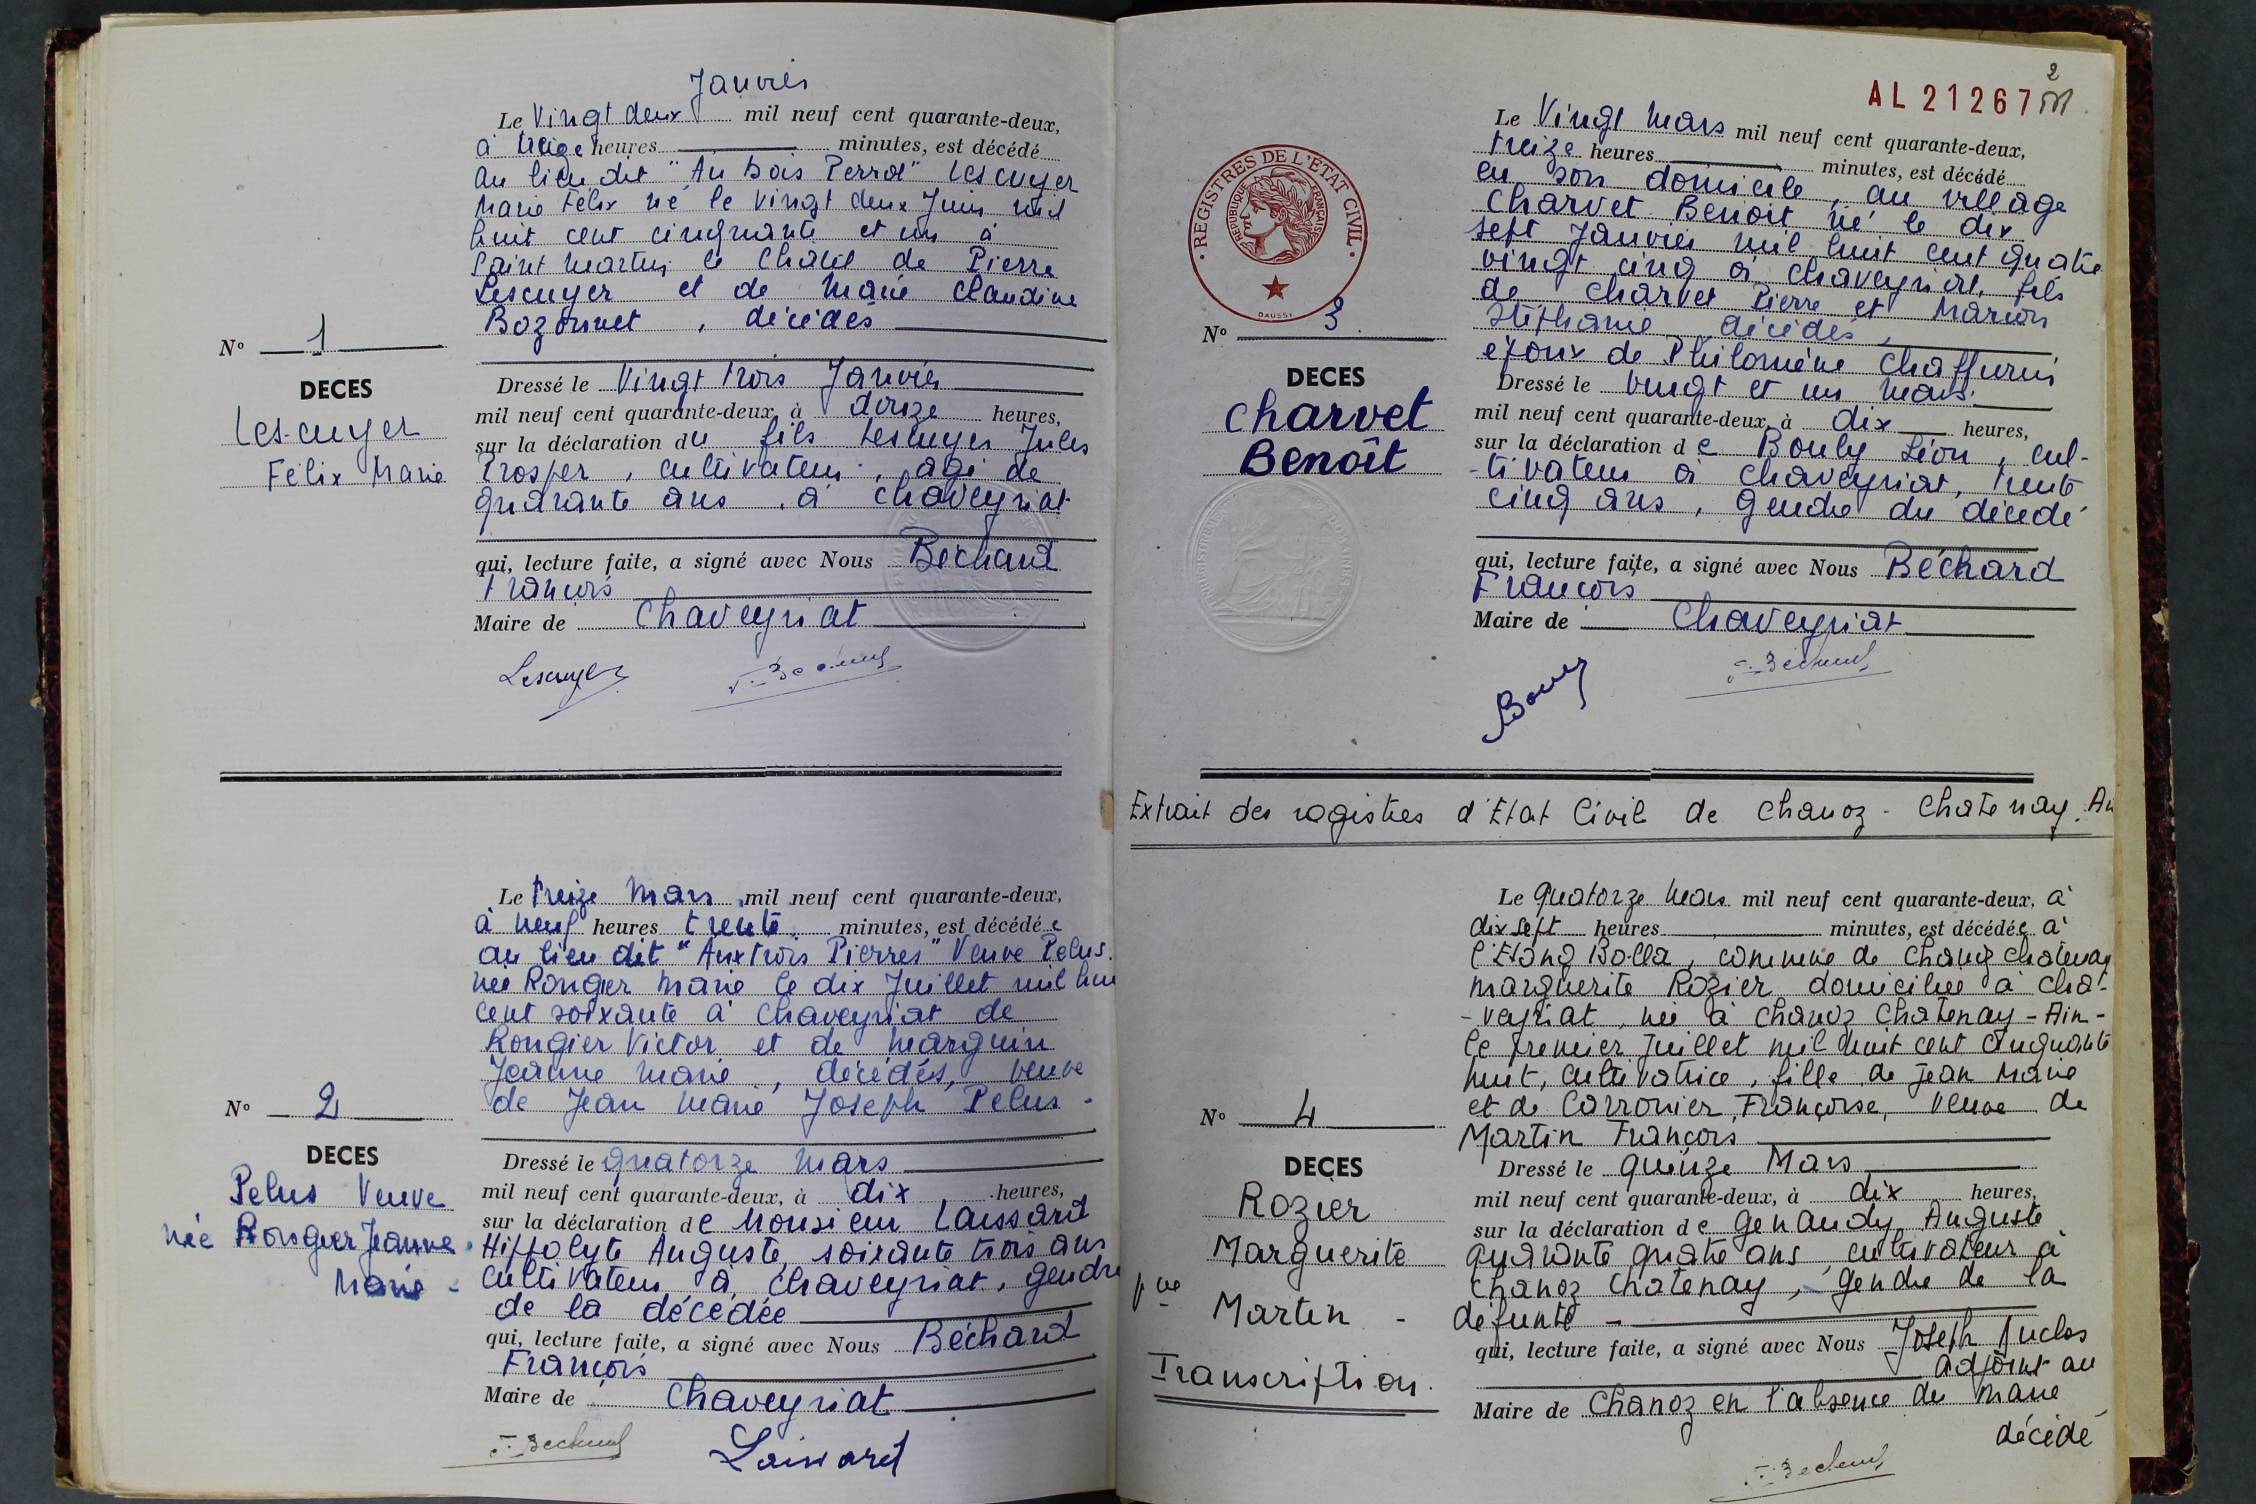 Janvier
Le Vingt deux mil neuf cent quarante-deux,
à treize heures minutes, est décédé
au lieu dit "Au Bois Perrot" Lescuyer
Marie Félix né le vingt deux Juin mil
huit cent cinquante et un à
Saint Martin le Chatel de Pierre
Lescuyer et de Marie Claudine
Bozonnet, décédés
N° 1
DECES
Lescuyer
Félix Marie
Dressé le Vingt trois Janvier
mil neuf cent quarante-deux, à douze heures,
sur la déclaration du fils Lescuyer Jules
Prosper, cultivateur, agé de
quarante ans, à Chaveyriat
qui, lecture faite, a signé avec Nous Béchard
François
Maire de Chaveyriat
Lescuyer F. Bechard
Le treize Mars mil neuf cent quarante-deux,
à neuf heures trente minutes, est décédée
au lieu dit "Aux trois Pierres" Veuve Pelus
née Rongier Marie le dix Juillet mil hui
cent soixante à Chaveyriat de
Rongier Victor et de Marguin
Jeanne Marie, décédés, veuve
de Jean Marie Joseph Pelus.
N° 2
DECES
Pelus Veuve
née Rongier Jeanne
Marie
Dressé le quatorze mars
mil neuf cent quarante-deux, à dix heures,
sur la déclaration de Monsieur Laissard
Hippolyte Auguste, soixante trois ans
cultivateur à Chaveyriat, gendre
de la décédée
qui, lecture faite, a signé avec Nous Béchard
François
Maire de Chaveyriat
F. Bechard Laissard
2
AL 21267
REGISTRES DE L'ETAT CIVIL
REPUBLIQUE FRANÇAISE
DAUSSY
Le Vingt Mars mil neuf cent quarante-deux,
treize heures minutes, est décédé
en son domicile, au village
Charvet Benoit né le dix
sept Janvier mil huit cent quatre
vingt cinq à Chaveyriat, fils
de Charvet Pierre et Marion
Stéphanie, décédés,
époux de Philomène Chaffurin
N° 3
DECES
Charvet
Benoît
Dressé le vingt et un Mars.
mil neuf cent quarante-deux, à dix heures,
sur la déclaration de Bouly Léon, cul-
-tivateur à Chaveyriat, trente
cinq ans, gendre du décédé
qui, lecture faite, a signé avec Nous Béchard
François
Maire de Chaveyriat
Bouly F. Bechard
Extrait des registres d'Etat Civil de Chanoz - Chatenay. Ain
Le quatorze Mars mil neuf cent quarante-deux, à
dix sept heures minutes, est décédée à
l'Etang Bolla, commune de Chanoz Chatenay
Marguerite Rozier domiciliée à Cha-
-veyriat, née à Chanoz Chatenay - Ain -
le premier Juillet mil huit cent cinquante
huit, cultivatrice, fille de Jean Marie
et de Carronier Françoise, veuve de
Martin François
N° 4
DECES
Rozier
Marguerite
Vve Martin -
Transcription.
Dressé le quinze Mars
mil neuf cent quarante-deux, à dix heures,
sur la déclaration de Genaudy Auguste
quarante quatre ans, cultivateur à
Chanoz Chatenay, gendre de la
défunte -
qui, lecture faite, a signé avec Nous Joseph Duclos
adjoint au
Maire de Chanoz en l'absence du Maire
décédé
F. Bechard